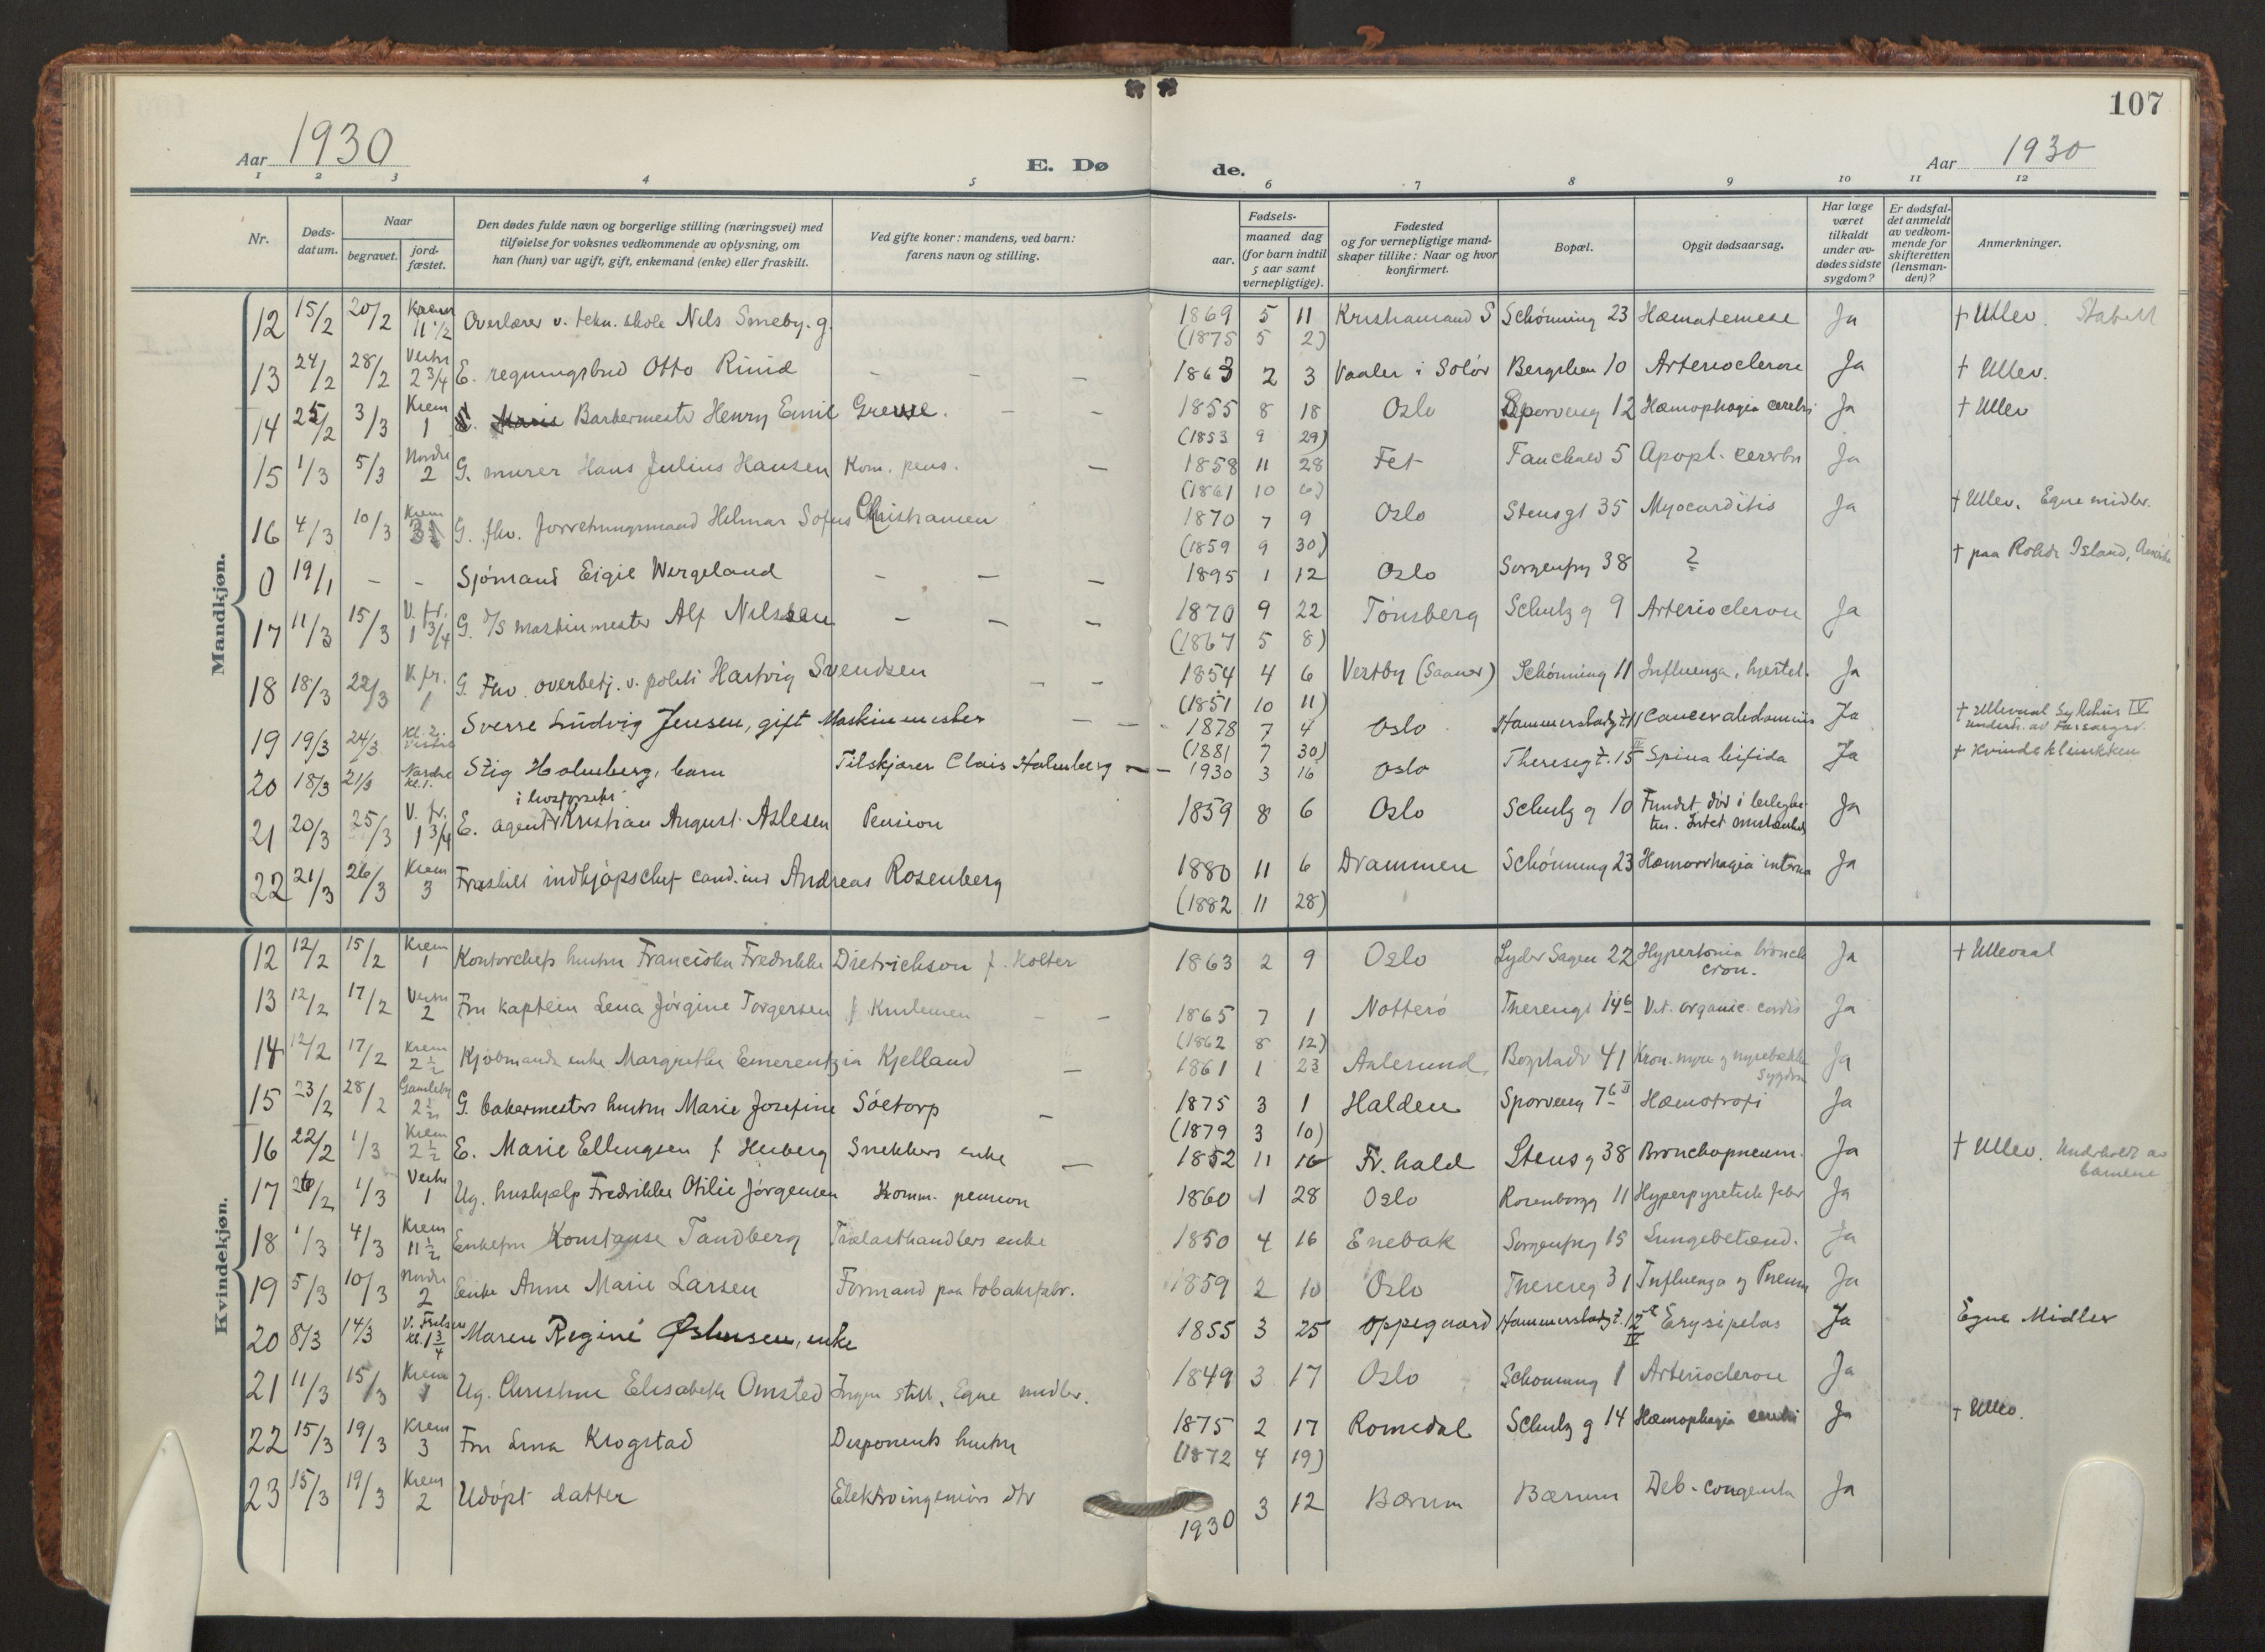 107
Aar 1930 E. Døde. Aar 1930
1 2 3 4 5 6 7 8 9 10 11 12
Nr. Døds-datum. Naar begravet. jord-fæstet. Den dødes fulde navn og borgerlige stilling (næringsvei) med tilføielse for voksnes vedkommende av oplysning, om han (hun) var ugift, gift, enkemand (enke) eller fraskilt. Ved gifte koner: mandens, ved barn: farens navn og stilling. Fødsels- aar. maaned dag (for barn indtil 5 aar samt vernepligtige). Fødested og for vernepligtige mand-skaper tillike: Naar og hvor konfirmert. Bopæl. Opgit dødsaarsag. Har læge været tilkaldt under av-dødes sidste sygdom? Er dødsfal-det anmeldt av vedkom-mende for skifteretten (lensman-den)? Anmerkninger.
Mandkjøn.
12 15/2 20/2 Krem 11 1/2 Overlærer v. tekn. skole Nils Smeby. g. 1869 5 11 Kristiansand S Schønning 23 Hæmatemese Ja † Ullev.
(1875 5 2)
13 24/2 28/2 Vestre 2 3/4 E. regningsbud Otto Rinid - - - 1863 2 3 Vaaler i Solør Bergslien 10 Arteriosclerose Ja † Ullev.
14 25/2 3/3 Krem 1 Barbermester Henry Emil - - 1855 8 18 Oslo Sporveisg 12 Hæmophagia cerebri Ja † Ullev
(1853 9 29)
15 1/3 5/3 Nordre 2 G. murer Hans Julius Hansen Kom. pens. - 1858 11 28 Fet Fauchalds 5 Apopl. cerebri Ja
(1861 10 6)
16 4/3 10/3 Krem G. fhv. forretningsmand Hilmar Sofus Christiansen 1870 7 9 Oslo Stensgt 35 Myocarditis Ja † Ullev. Egne midler.
(1859 9 30)
0 19/1 - - Sjømand Eigil Wergeland - - - 1895 1 12 Oslo Sorgenfrig 38 ? † paa Rohde Island,
17 11/3 15/3 V. fr. 1 3/4 G. D/S maskinmester Alf Nilssen - - - 1870 9 22 Tønsberg Schulz g 9 Arteriosclerose Ja
(1867 5 8)
18 18/3 22/3 V. fr. 1 G. Fhv. overbetj. v. politi Hartvig Svendsen - - 1854 4 6 Vestby (Saaner) Schønning 11 Influenza, hjertel. Ja
(1851 10 11)
19 19/3 24/3 Kl. 2. Vestre Sverre Ludvig Jensen, gift Maskinmester - - - 1878 7 4 Oslo Cancer abdominis Ja † Ullevaal Sykehus IV Underh. av Forsorgsv.
(1881 7 30)
20 18/3 21/3 Nordre kl. 1. Stig Holmberg, barn Tilskjærer Clais Holmberg - - 1930 3 16 Oslo Theresegt. 15 IV Spina bifida Ja † Kvindeklinikken
21 20/3 25/3 V. fr. 1 3/4 E. agent i livsforsekr. Kristian August Aslesen Pension 1859 8 6 Oslo Schulz g 10 Fundet død i leilighe-ten. Ja
22 21/3 26/3 Krem 3 Fraskilt indkjøpschef cand. Andreas Rosenberg 1880 11 6 Drammen Schønning 23 Hæmorrhagia interna Ja
(1882 11 28)
Kvindekjøn.
12 12/2 15/2 Krem 1 Kontorchefs hustru Franciska Fredrikke Dietrichson f. Holter 1863 2 9 Oslo Lyder Sagen 22 Hypertonia bronch cron. Ja † Ullevaal
13 12/2 17/2 Vestre 2 Fru kaptein Lena Jørgine Torgersen - - 1865 7 1 Nøtterø Theresegt 14 b Vit. organic. cordis Ja
(1862 8 12)
14 12/2 17/2 Krem 2 1/2 Kjøbmands enke Margrethe Emerentzia Kjelland - 1861 1 23 Aalesund Bogstadv 41 Kron. nyre og nyrebækken sygdom Ja
15 23/2 28/2 Gamleby 2 1/2 G. bakermesters hustru Marie Josefine Söetorp - 1875 3 1 Halden Sporveisg 7 b II Hæmotrofi Ja
(1879 3 10)
16 22/2 1/3 Krem 2 1/2 E. Marie Ellingsen f. Huberg Snekkers enke - 1852 11 16 Fr.hald Stens g 38 Bronchopneum. Ja † Ullev. Underholdt av barnene
17 26/2 1/3 Vestre 1 Ug. hushjælp Fredrikke Otilie Jørgensen Komm. pension 1860 1 28 Oslo Rosenborgg 11 Hyperpyretisk feber Ja
18 1/3 4/3 Krem 11 1/2 Enkefru Konstanse Tandberg Trælasthandlers enke 1850 4 16 Enebak Sorgenfrig 15 Lungebetænd. Ja
19 5/3 10/3 Nordre 2 Enke Anne Marie Larsen Formand paa tobaksfabr. 1859 2 10 Oslo Theresesg 31 Influenza og Pneum Ja
20 8/3 14/3 V. Frelsers kl. 1 3/4 Maren Regine Østensen, enke 1855 3 25 Oppegaard Hammerstadgt. 12 IV Erysipelas Ja Egne Midler
21 11/3 15/3 Krem 1 Ug. Christine Elisabeth Omsted Ingen still. Egne midler. 1849 3 17 Oslo Schønning 1 Arteriosclerose Ja
22 15/3 19/3 Krem 3 Fru Lina Krogstad Disponents hustru 1875 2 17 Romedal Schulz g 14 Hæmophagia cerebri Ja † Ullev.
(1872 4 19)
23 15/3 19/3 Krem 2 Udöpt datter Elektroingeniørs dtr 1930 3 12 Bærum Bærum Deb. congenita Ja